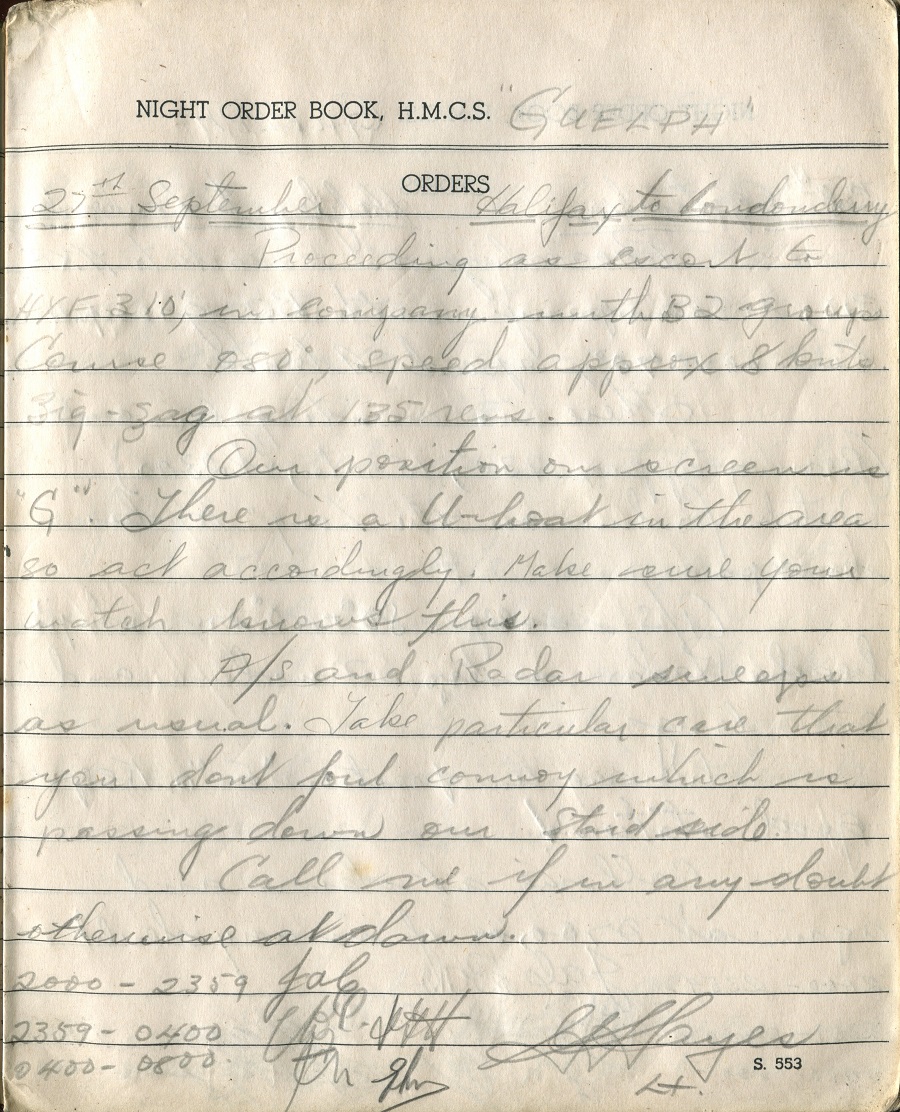 NIGHT ORDER BOOK, H.M.C.S. "GUELPH"
ORDERS
27th September Halifax to Londonderry
Proceeding as escort to
HXF 310, in company with B2 group
Course 080°, speed approx 8 knts.
Zig-zag at 135 revs.
Our position on screen is
"G". There is a U-boat in the area
so act accordingly. Make sure your
watch knows this.
A/S and Radar sweeps
as usual. Take particular care that
you dont foul convoy which is
passing down our Stb'd side.
Call me if in any doubt
otherwise at dawn.
2000 - 2359
2359 - 0400
Hayes
0400 - 0800.
S. 553
Lt.